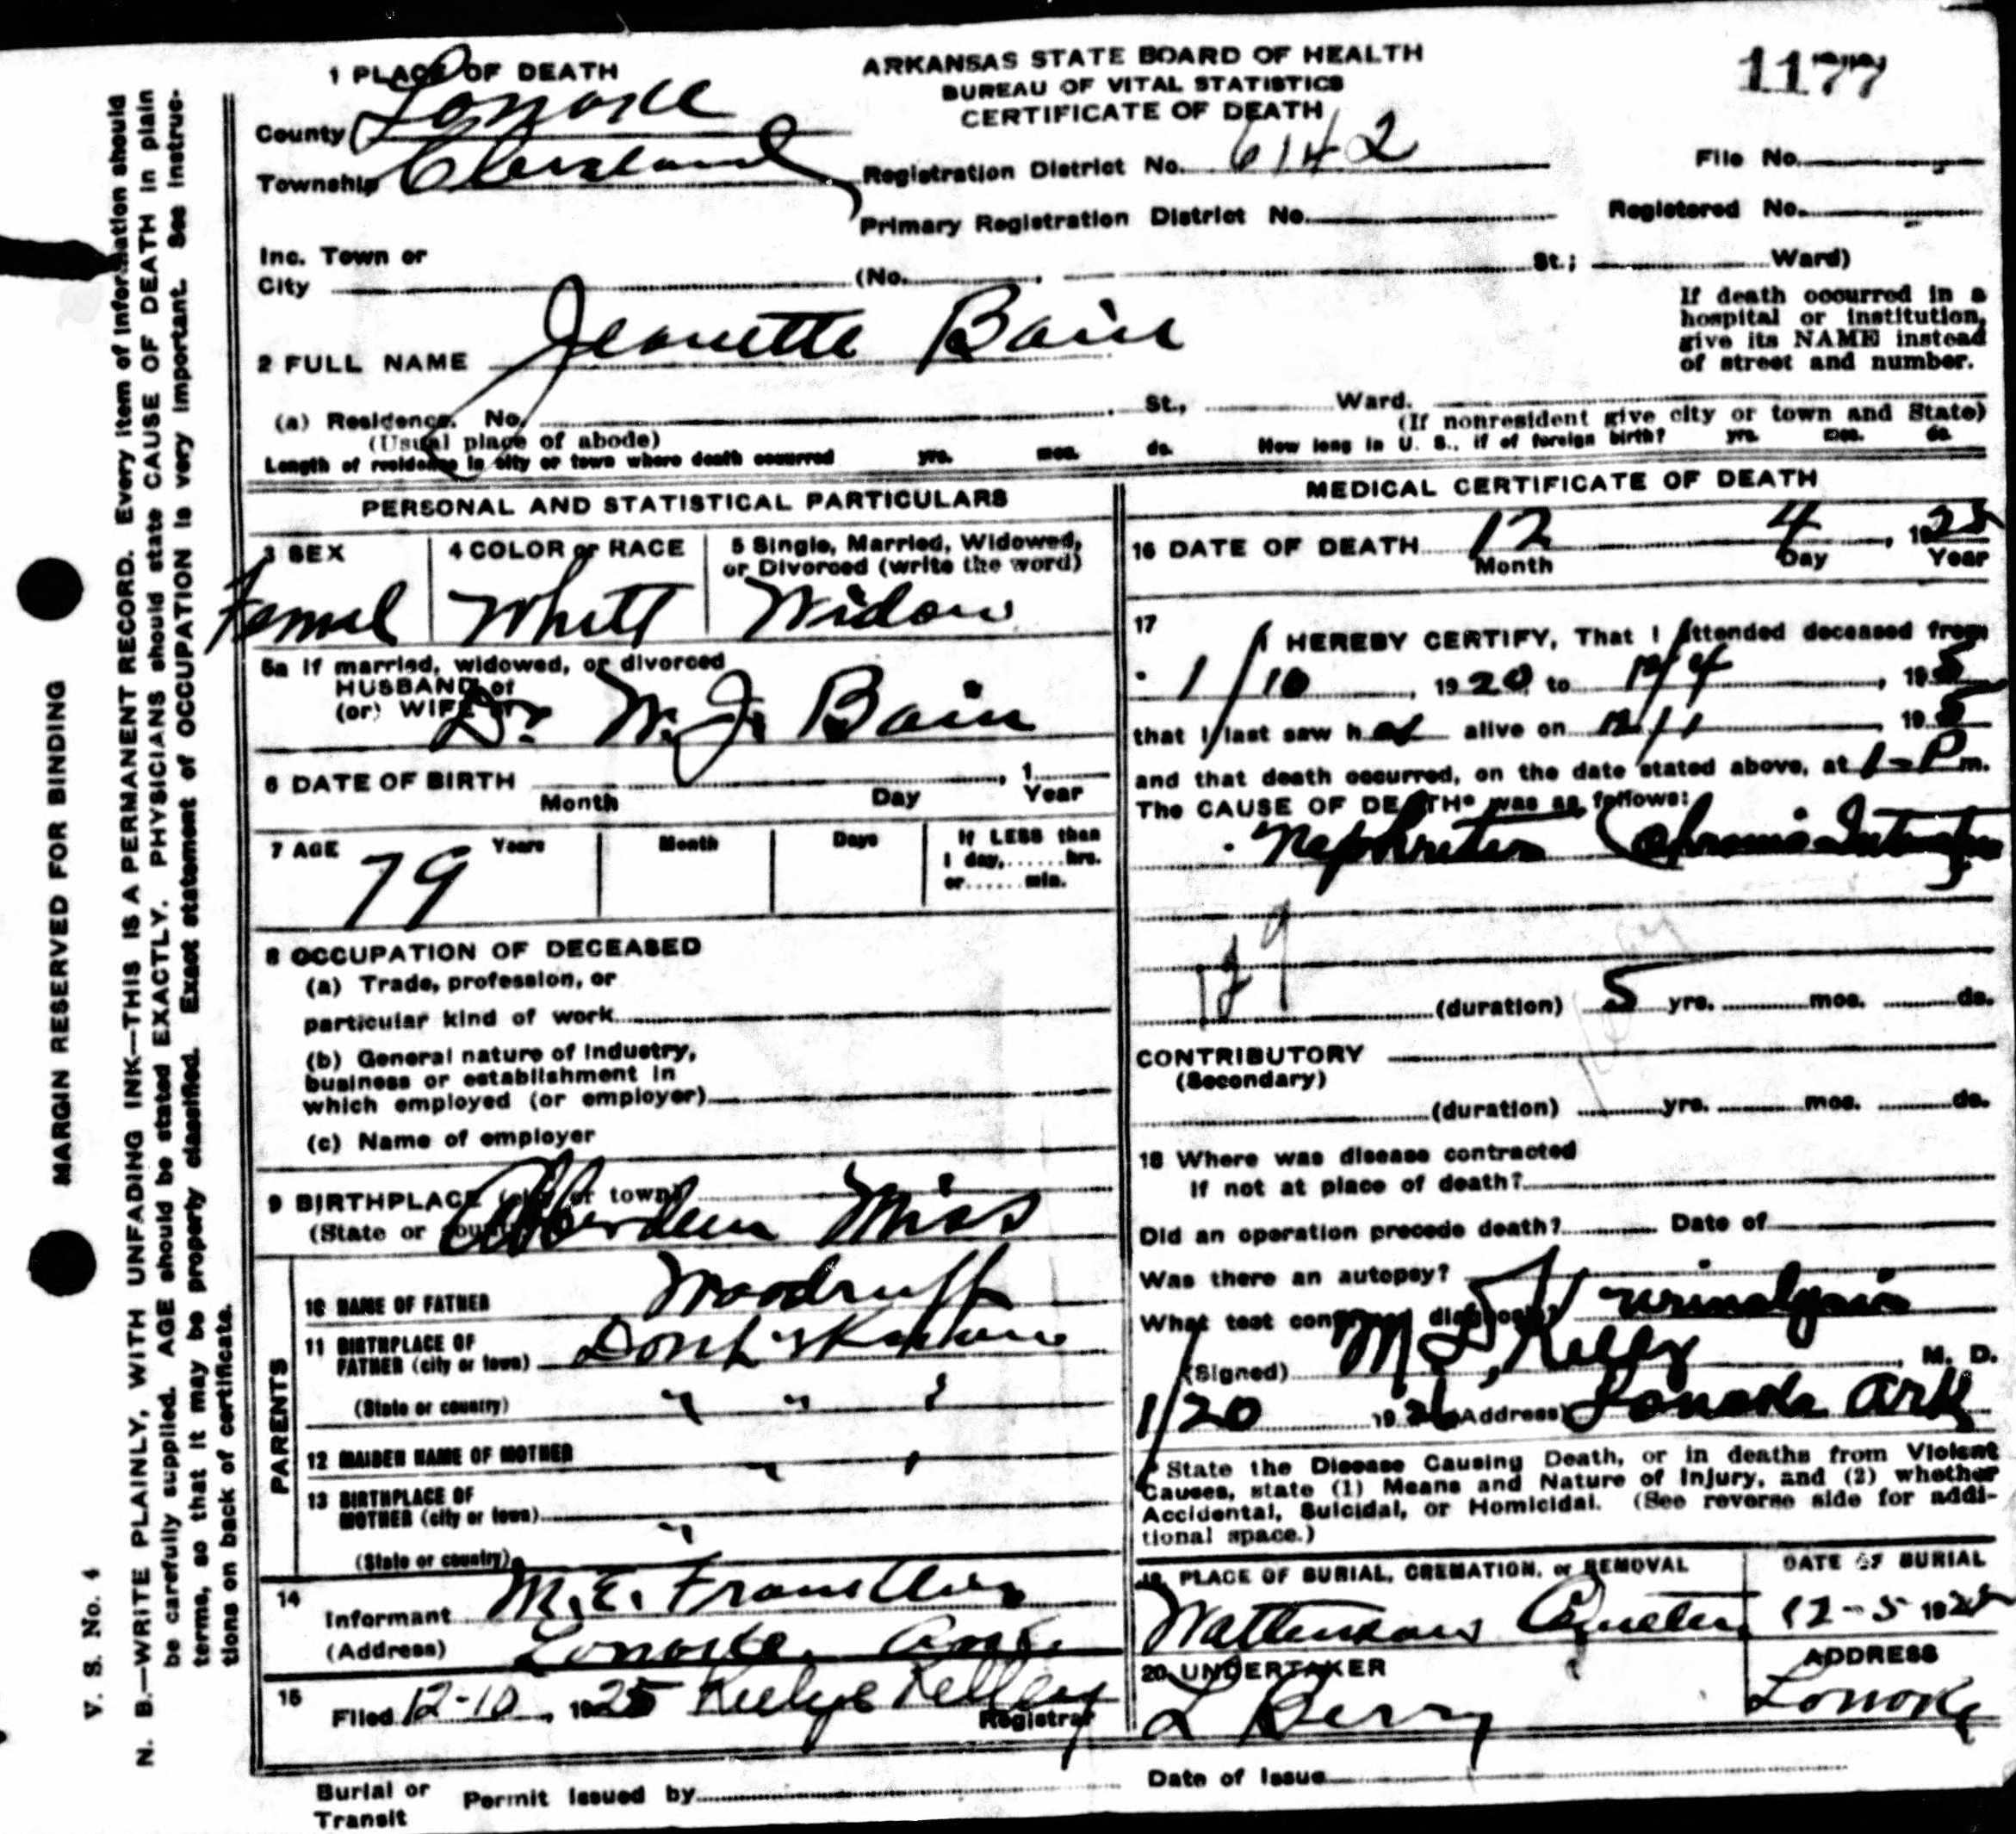 1177
ARKANSAS STATE BOARD OF HEALTH
BUREAU OF VITAL STATISTICS
CERTIFICATE OF DEATH
1 PLACE OF DEATH
County Lonoke
Township Cleveland
Registration District No. 6142
File No.
Primary Registration District No.
Registered No.
Inc. Town or
City (No. St.; Ward)
If death occurred in a
hospital or institution,
give its NAME instead
of street and number.
2 FULL NAME Jeanette Bain
(a) Residence. No. St., Ward.
(Usual place of abode) (If nonresident give city or town and State)
Length of residence in city or town where death occurred yrs. mos. ds. How long in U. S., if of foreign birth? yrs. mos. ds.
PERSONAL AND STATISTICAL PARTICULARS
3 SEX 4 COLOR or RACE 5 Single, Married, Widowed,
or Divorced (write the word)
Femal Whitt Widow
5a If married, widowed, or divorced
HUSBAND of
(or) WIFE of
Dr. W. J. Bain
6 DATE OF BIRTH , 1
Month Day Year
7 AGE Years Month Days If LESS than
1 day,......hrs.
or......min.
79
8 OCCUPATION OF DECEASED
(a) Trade, profession, or
particular kind of work
(b) General nature of industry,
business or establishment in
which employed (or employer)
(c) Name of employer
9 BIRTHPLACE (city or town)
(State or country) Abberdeen Miss
PARENTS
10 NAME OF FATHER Woodruff
11 BIRTHPLACE OF
FATHER (city or town) Dont Know
(State or country) " " "
12 MAIDEN NAME OF MOTHER " "
13 BIRTHPLACE OF
MOTHER (city or town)
(State or country) "
14
Informant M. E.
(Address) Lonoke, Ark
15
Filed 12-10, 1925 Kelley
Registrar
MEDICAL CERTIFICATE OF DEATH
16 DATE OF DEATH 12 4, 1925
Month Day Year
17
I HEREBY CERTIFY, That I attended deceased from
1/10, 1920 to 12/4, 195
that I last saw her alive on 12/1 195
and that death occurred, on the date stated above, at 1-P m.
The CAUSE OF DEATH* was as follows:
Nephritis Chronic
129
(duration) 5 yrs. mos. ds.
CONTRIBUTORY
(Secondary)
(duration) yrs. mos. ds.
18 Where was disease contracted
if not at place of death?
Did an operation precede death? Date of
Was there an autopsy?
What test confirmed diagnosis? urinalysis
(Signed) M. D.
Kelly
1/20 1926 (Address) Lonoke Ark
* State the Disease Causing Death, or in deaths from Violent
Causes, state (1) Means and Nature of Injury, and (2) whether
Accidental, Suicidal, or Homicidal. (See reverse side for addi-
tional space.)
19 PLACE OF BURIAL, CREMATION, or REMOVAL DATE OF BURIAL
12-5 1925
20 UNDERTAKER ADDRESS
L Berry Lonoke
Burial or
Transit Permit issued by Date of Issue
MARGIN RESERVED FOR BINDING
V. S. No. 4
N. B.—WRITE PLAINLY, WITH UNFADING INK—THIS IS A PERMANENT RECORD. Every item of information should
be carefully supplied. AGE should be stated EXACTLY. PHYSICIANS should state CAUSE OF DEATH in plain
terms, so that it may be properly classified. Exact statement of OCCUPATION is very important. See instruc-
tions on back of certificate.